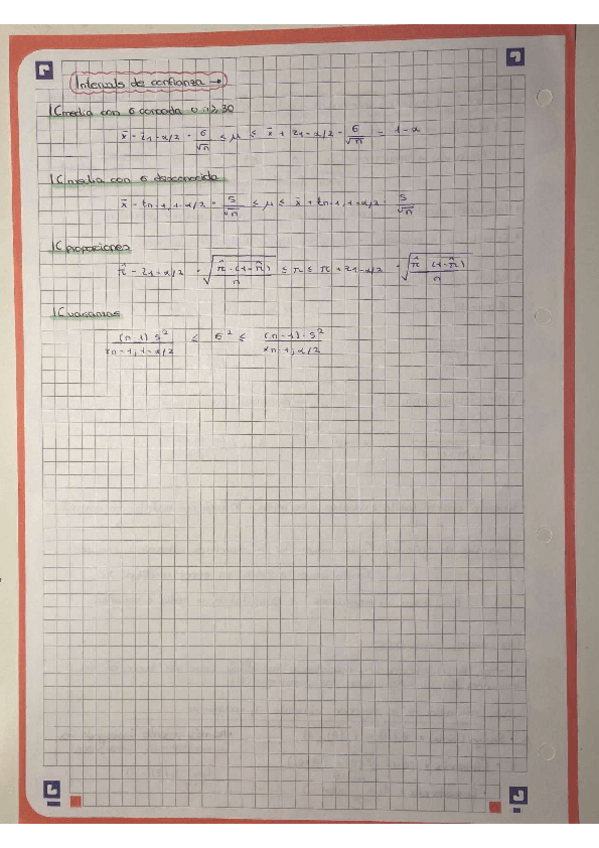 Intervalos de confianza →
IC media con σ conocida o n≥30
x̄ - z1-α/2 · σ/√n ≤ μ ≤ x̄ + z1-α/2 · σ/√n = 1-α
IC media con σ desconocida
x̄ - tn-1, 1-α/2 · s/√n ≤ μ ≤ x̄ + tn-1, 1-α/2 · s/√n
IC proporciones
π̂ - z1-α/2 · √(π̂·(1-π̂)/n) ≤ π ≤ π̂ + z1-α/2 · √(π̂·(1-π̂)/n)
IC varianzas
(n-1)·s²/xn-1, 1-α/2 ≤ σ² ≤ (n-1)·s²/xn-1, α/2